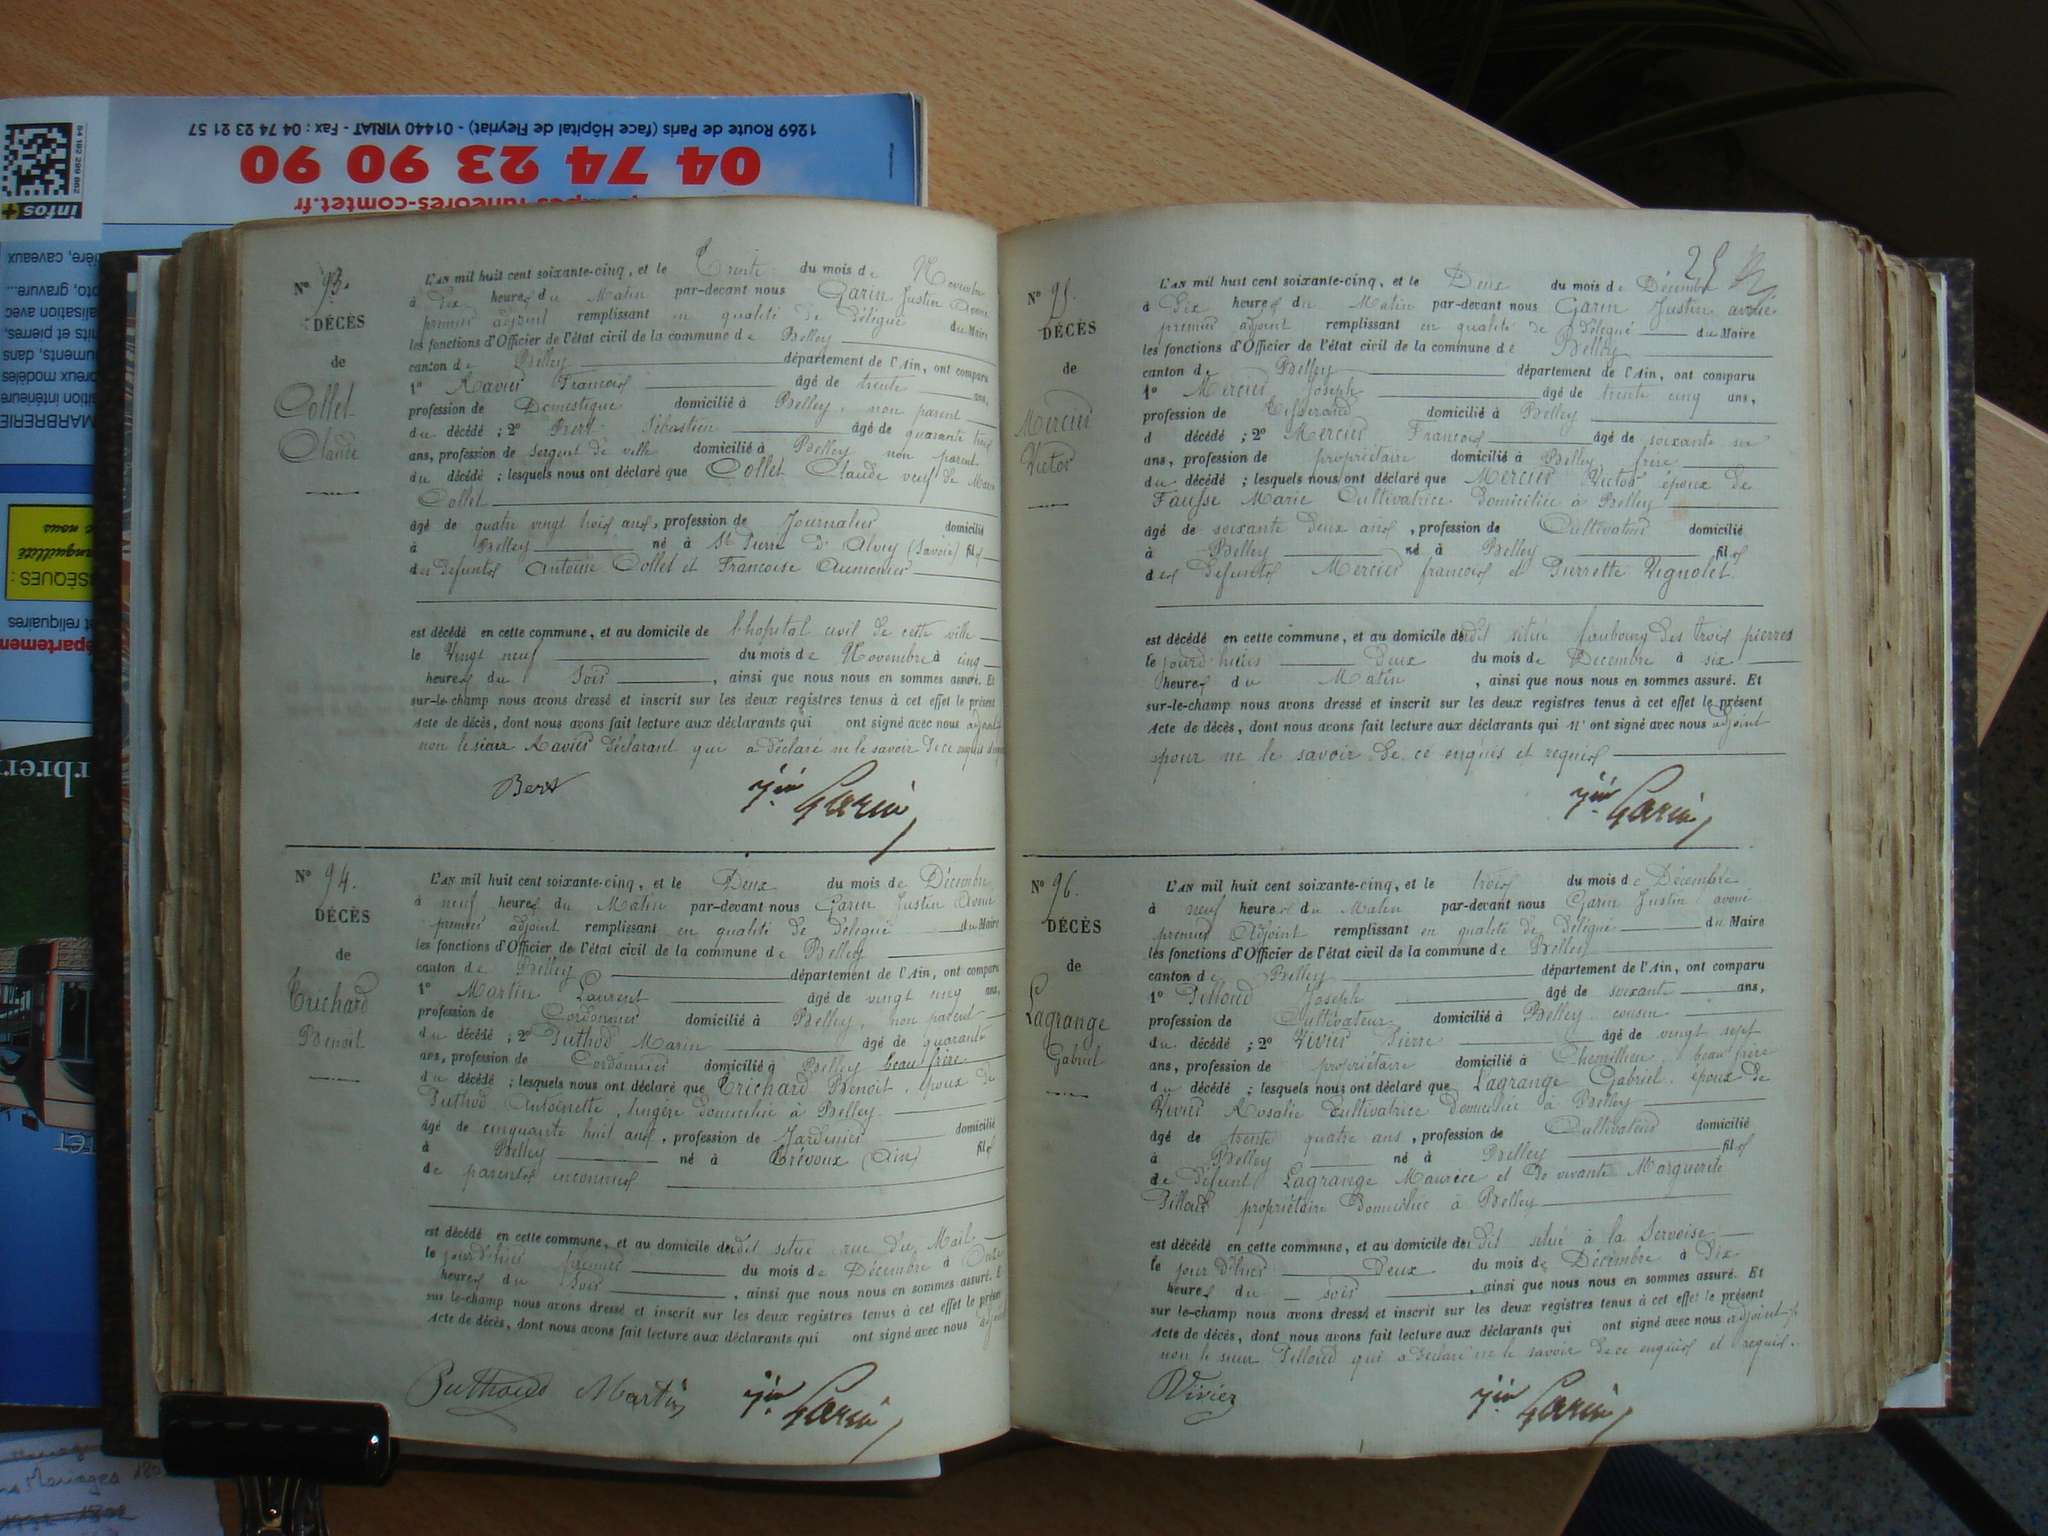 1269 Route de Paris (face Hôpital de Fleyriat) - 01440 VIRIAT - Fax : 04 74 23 21 57
04 74 23 90 90
funèbres-comtet.fr
infos+
N° 93.
DÉCÈS
de
Collet
Claude
L'AN mil huit cent soixante-cinq, et le Trente du mois de Novembre
à dix heures du Matin par-devant nous Garin Justin avoué
premier adjoint remplissant en qualité de délégué du Maire
les fonctions d'Officier de l'état civil de la commune de Belley
canton de Belley département de l'Ain, ont comparu
1° Ravier François âgé de trente ans,
profession de Domestique domicilié à Belley, non parent
du décédé ; 2° Bert Sébastien âgé de quarante trois
ans, profession de sergent de ville domicilié à Belley non parent
du décédé ; lesquels nous ont déclaré que Collet Claude veuf de Marie
Collet
âgé de quatre vingt trois ans, profession de Journalier domicilié
à Belley né à St Pierre d'Alvey (Savoie) fils
des defunts Antoine Collet et Francoise Aumonier
est décédé en cette commune, et au domicile de l'hopital civil de cette ville
le Vingt neuf du mois de Novembre à cinq
heures du Soir, ainsi que nous nous en sommes assuré. Et
sur-le-champ nous avons dressé et inscrit sur les deux registres tenus à cet effet le présent
Acte de décès, dont nous avons fait lecture aux déclarants qui ont signé avec nous adjoint
non le sieur Ravier déclarant que a déclaré ne le savoir de ce enquis
Bert Jin Garin
N° 94.
DÉCÈS
de
Trichard
Benoit
L'AN mil huit cent soixante-cinq, et le Deux du mois de Décembre
à neuf heures du Matin par-devant nous Garin Justin avoué
premier adjoint remplissant en qualité de délégué du Maire
les fonctions d'Officier de l'état civil de la commune de Belley
canton de Belley département de l'Ain, ont comparu
1° Martin Laurent âgé de vingt cinq ans,
profession de Cordonnier domicilié à Belley, non parent
du décédé ; 2° Puthod Marin âgé de quarante
ans, profession de Cordonnier domicilié à Belley beau frère
du décédé ; lesquels nous ont déclaré que Trichard Benoit époux de
Puthod Antoinette, lingère domiciliée à Belley
âgé de cinquante huit ans, profession de Jardinier domicilié
à Belley né à Trévoux (Ain) fils
de parents inconnus
est décédé en cette commune, et au domicile du dit situé rue du Mail
le jourd'hier premier du mois de Décembre à Onze
heures du Soir, ainsi que nous nous en sommes assuré. E
sur le-champ nous avons dressé et inscrit sur les deux registres tenus à cet effet le présen
Acte de décès, dont nous avons fait lecture aux déclarants qui ont signé avec nous adjoint
Puthoud Martin Jin Garin
25
N° 95.
DÉCÈS
de
Mercier
Victor
L'AN mil huit cent soixante-cinq, et le Deux du mois de Décembre
à Dix heures du Matin par-devant nous Garin Justin avoué
premier adjoint remplissant en qualité de délégué du Maire
les fonctions d'Officier de l'état civil de la commune de Belley
canton de Belley département de l'Ain, ont comparu
1° Mercier Joseph âgé de trente cinq ans,
profession de Tisserand domicilié à Belley
d décédé ; 2° Mercier François âgé de soixante six
ans, profession de propriétaire domicilié à Belley frère
du décédé ; lesquels nous ont déclaré que Mercier Victor époux de
Fausse Marie Cultivatrice domiciliée à Belley
âgé de soixante deux ans, profession de Cultivateur domicilié
à Belley né à Belley fils
des defunts Mercier françois et Pierrette Vignolet
est décédé en cette commune, et au domicile du dit situé faubourg des trois pierres
le jourd'hui Deux du mois de Décembre à six
heures du Matin, ainsi que nous nous en sommes assuré. Et
sur-le-champ nous avons dressé et inscrit sur les deux registres tenus à cet effet le présent
Acte de décès, dont nous avons fait lecture aux déclarants qui n'ont signé avec nous adjoint
pour ne le savoir de ce enquis et requis
Jin Garin
N° 96.
DÉCÈS
de
Lagrange
Gabriel
L'AN mil huit cent soixante-cinq, et le trois du mois de Décembre
à neuf heures du Matin par-devant nous Garin Justin avoué
premier Adjoint remplissant en qualité de délégué du Maire
les fonctions d'Officier de l'état civil de la commune de Belley
canton de Belley département de l'Ain, ont comparu
1° Pilloud Joseph âgé de soixante ans,
profession de Cultivateur domicilié à Belley cousin
du décédé ; 2° Vivier Pierre âgé de vingt sept
ans, profession de propriétaire domicilié à Chemillieu, beau frère
du décédé ; lesquels nous ont déclaré que Lagrange Gabriel, époux de
Vivier Rosalie Cultivatrice domiciliée à Belley
âgé de trente quatre ans, profession de Cultivateur domicilié
à Belley né à Belley fils
de défunt Lagrange Maurice et de vivante Marguerite
Pilloud propriétaire domiciliée à Belley
est décédé en cette commune, et au domicile du dit situé à la Servoise
le jour d'hier Deux du mois de Décembre à Dix
heures du soir, ainsi que nous nous en sommes assuré. Et
sur le-champ nous avons dressé et inscrit sur les deux registres tenus à cet effet le présent
Acte de décès, dont nous avons fait lecture aux déclarants qui ont signé avec nous adjoint
non le sieur Pilloud qui a déclaré ne le savoir de ce enquis et requis.
Vivier Jin Garin